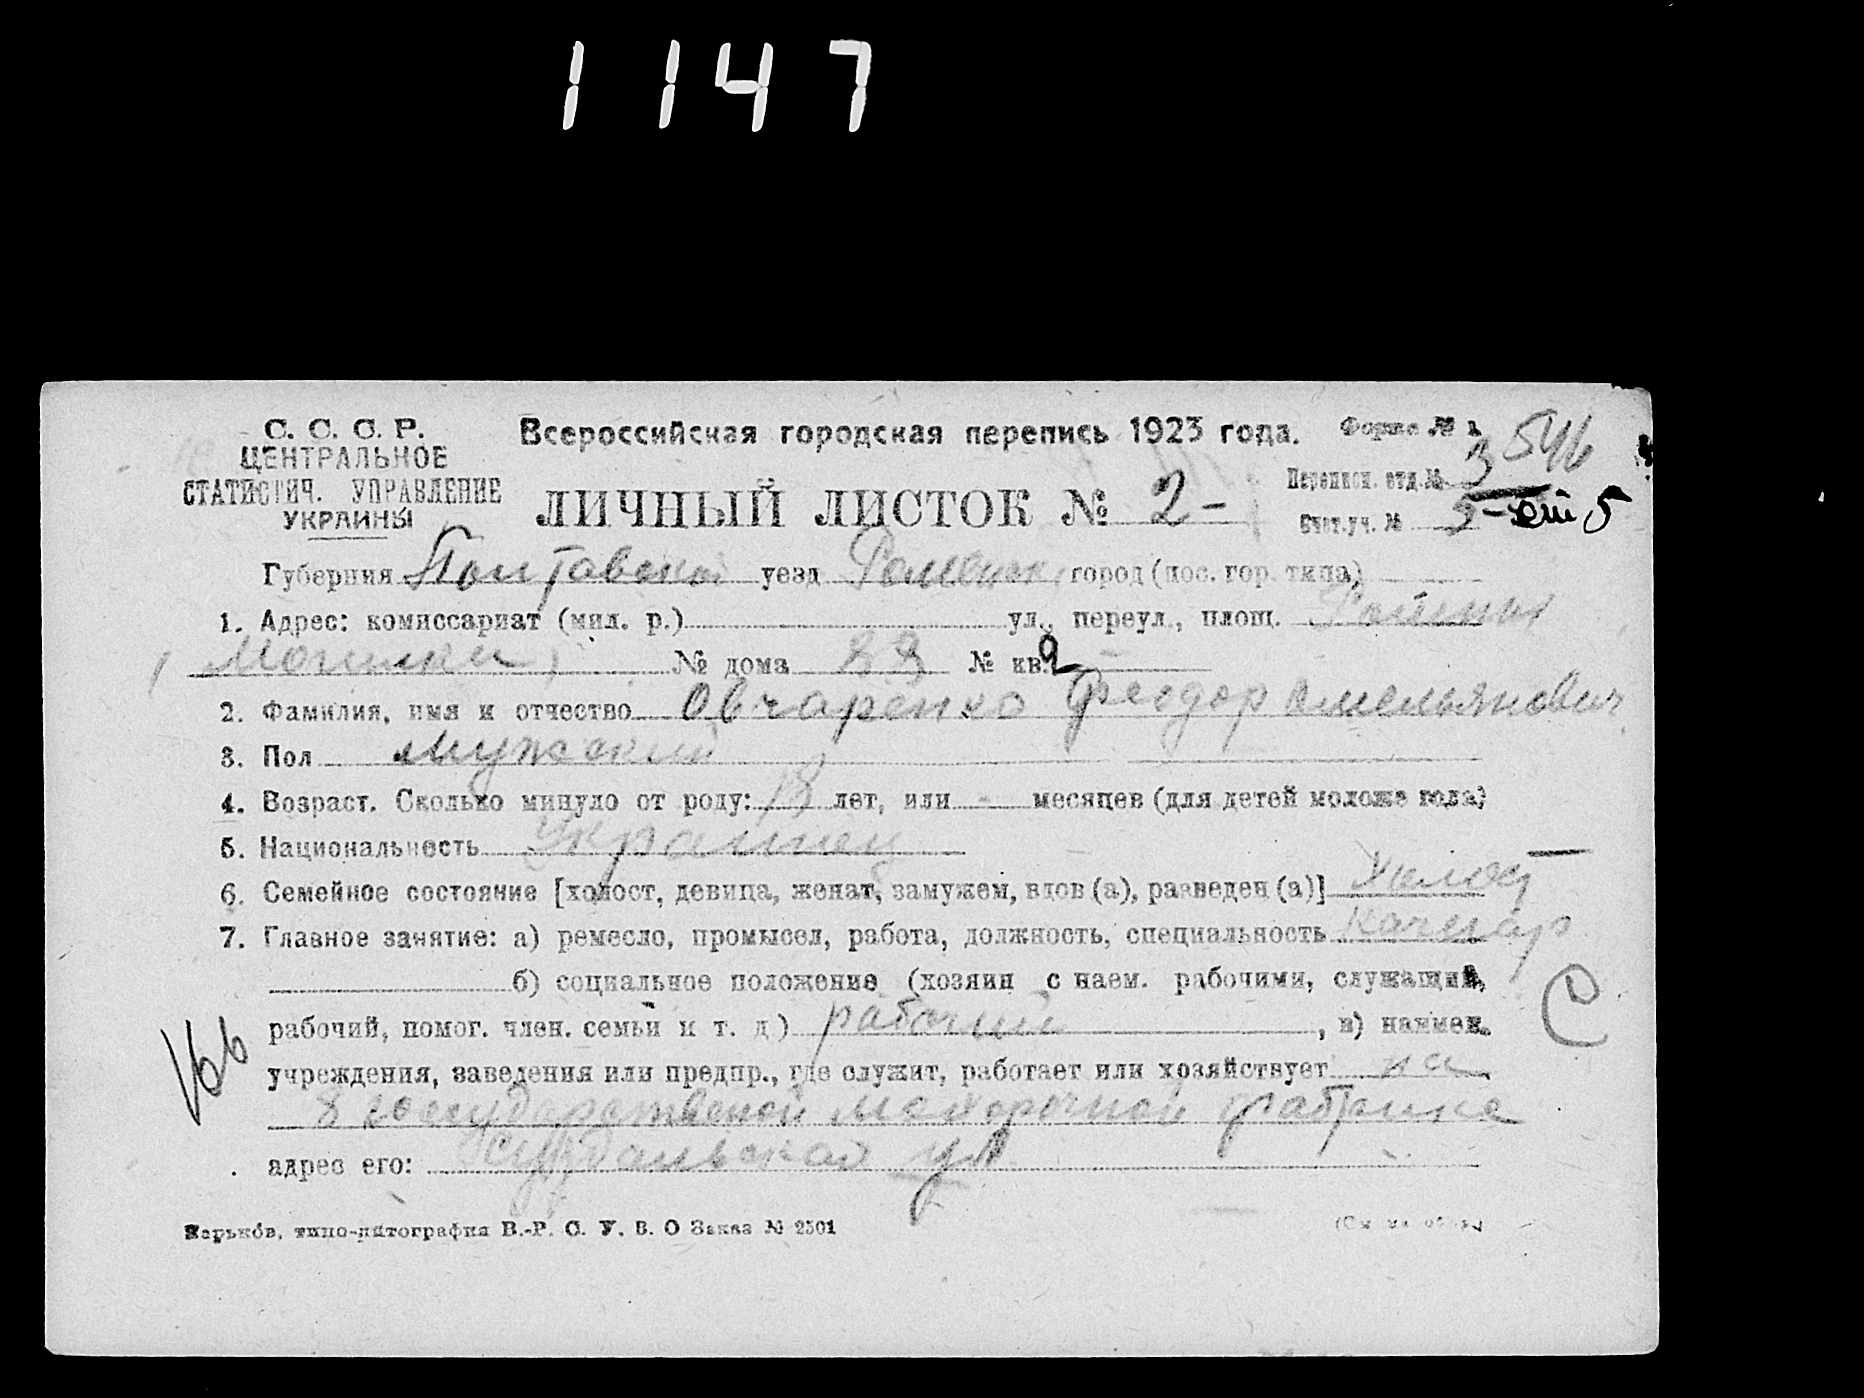 1147
С. С. С. Р.
ЦЕНТРАЛЬНОЕ
СТАТИСТИЧ. УПРАВЛЕНИЕ
УКРАИНЫ
Всероссийская городская перепись 1923 года.
ЛИЧНЫЙ ЛИСТОК № 2-
Форма № 1
546
Переписн. отд. № 3
Счет. уч. № 5
Губерния Полтавской уезд Роменск город (пос. гор. типа)
1. Адрес: комиссариат (мил. р.) ул., переул., площ.
Могилки № дома № кв. 2
2. Фамилия, имя и отчество Овчаренко Феодор Омельянович
3. Пол мужский
4. Возраст. Сколько минуло от роду: 18 лет, или - месяцев (для детей моложе года)
5. Национальность Украинец
6. Семейное состояние [холост, девица, женат, замужем, вдов (а), разведен (а)] Холост
7. Главное занятие: а) ремесло, промысел, работа, должность, специальность кочегар
б) социальное положение (хозяин с наем. рабочими, служащий,
рабочий, помог. член. семьи и т. д.) рабочий , в) наимен.
учреждения, заведения или предпр., где служит, работает или хозяйствует на
8 государственой махорочной фабрике
адрес его: ул
Харьков, типо-литография В.-Р. С. У. В. О Заказ № 2501
(См. на об
С